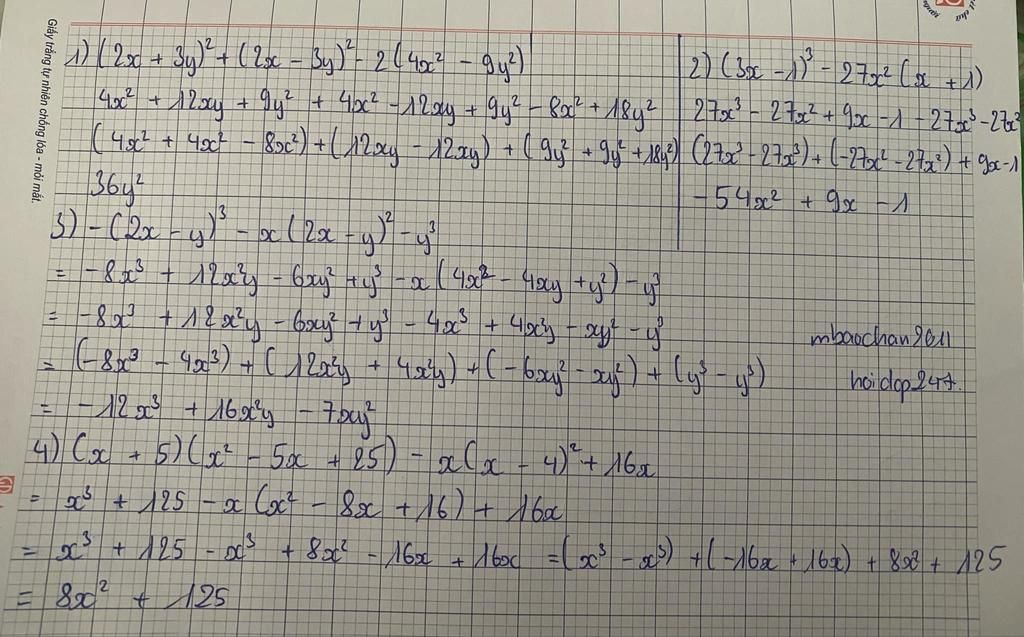 1) (2x + 3y)² + (2x - 3y)² - 2(4x² - 9y²)
4x² + 12xy + 9y² + 4x² - 12xy + 9y² - 8x² + 18y²
(4x² + 4x² - 8x²) + (12xy - 12xy) + (9y² + 9y² + 18y²)
36y²
2) (3x - 1)³ - 27x² (x + 1)
27x³ - 27x² + 9x - 1 - 27x³ - 27x²
(27x³ - 27x³) + (-27x² - 27x²) + 9x - 1
- 54x² + 9x - 1
3) - (2x - y)³ - x(2x - y)² - y³
= -8x³ + 12x²y - 6xy² + y³ - x(4x² - 4xy + y²) - y³
= -8x³ + 12x²y - 6xy² + y³ - 4x³ + 4x²y - xy² - y³
= (-8x³ - 4x³) + (12x²y + 4x²y) + (-6xy² - xy²) + (y³ - y³)
= -12x³ + 16x²y - 7xy²
mbaochan2611
hoidap247.
4) (x + 5)(x² - 5x + 25) - x(x - 4)² + 16x
= x³ + 125 - x (x² - 8x + 16) + 16x
= x³ + 125 - x³ + 8x² - 16x + 16x = (x³ - x³) + (-16x + 16x) + 8x² + 125
= 8x² + 125
Giấy trắng tự nhiên chống lóa - mỏi mắt.